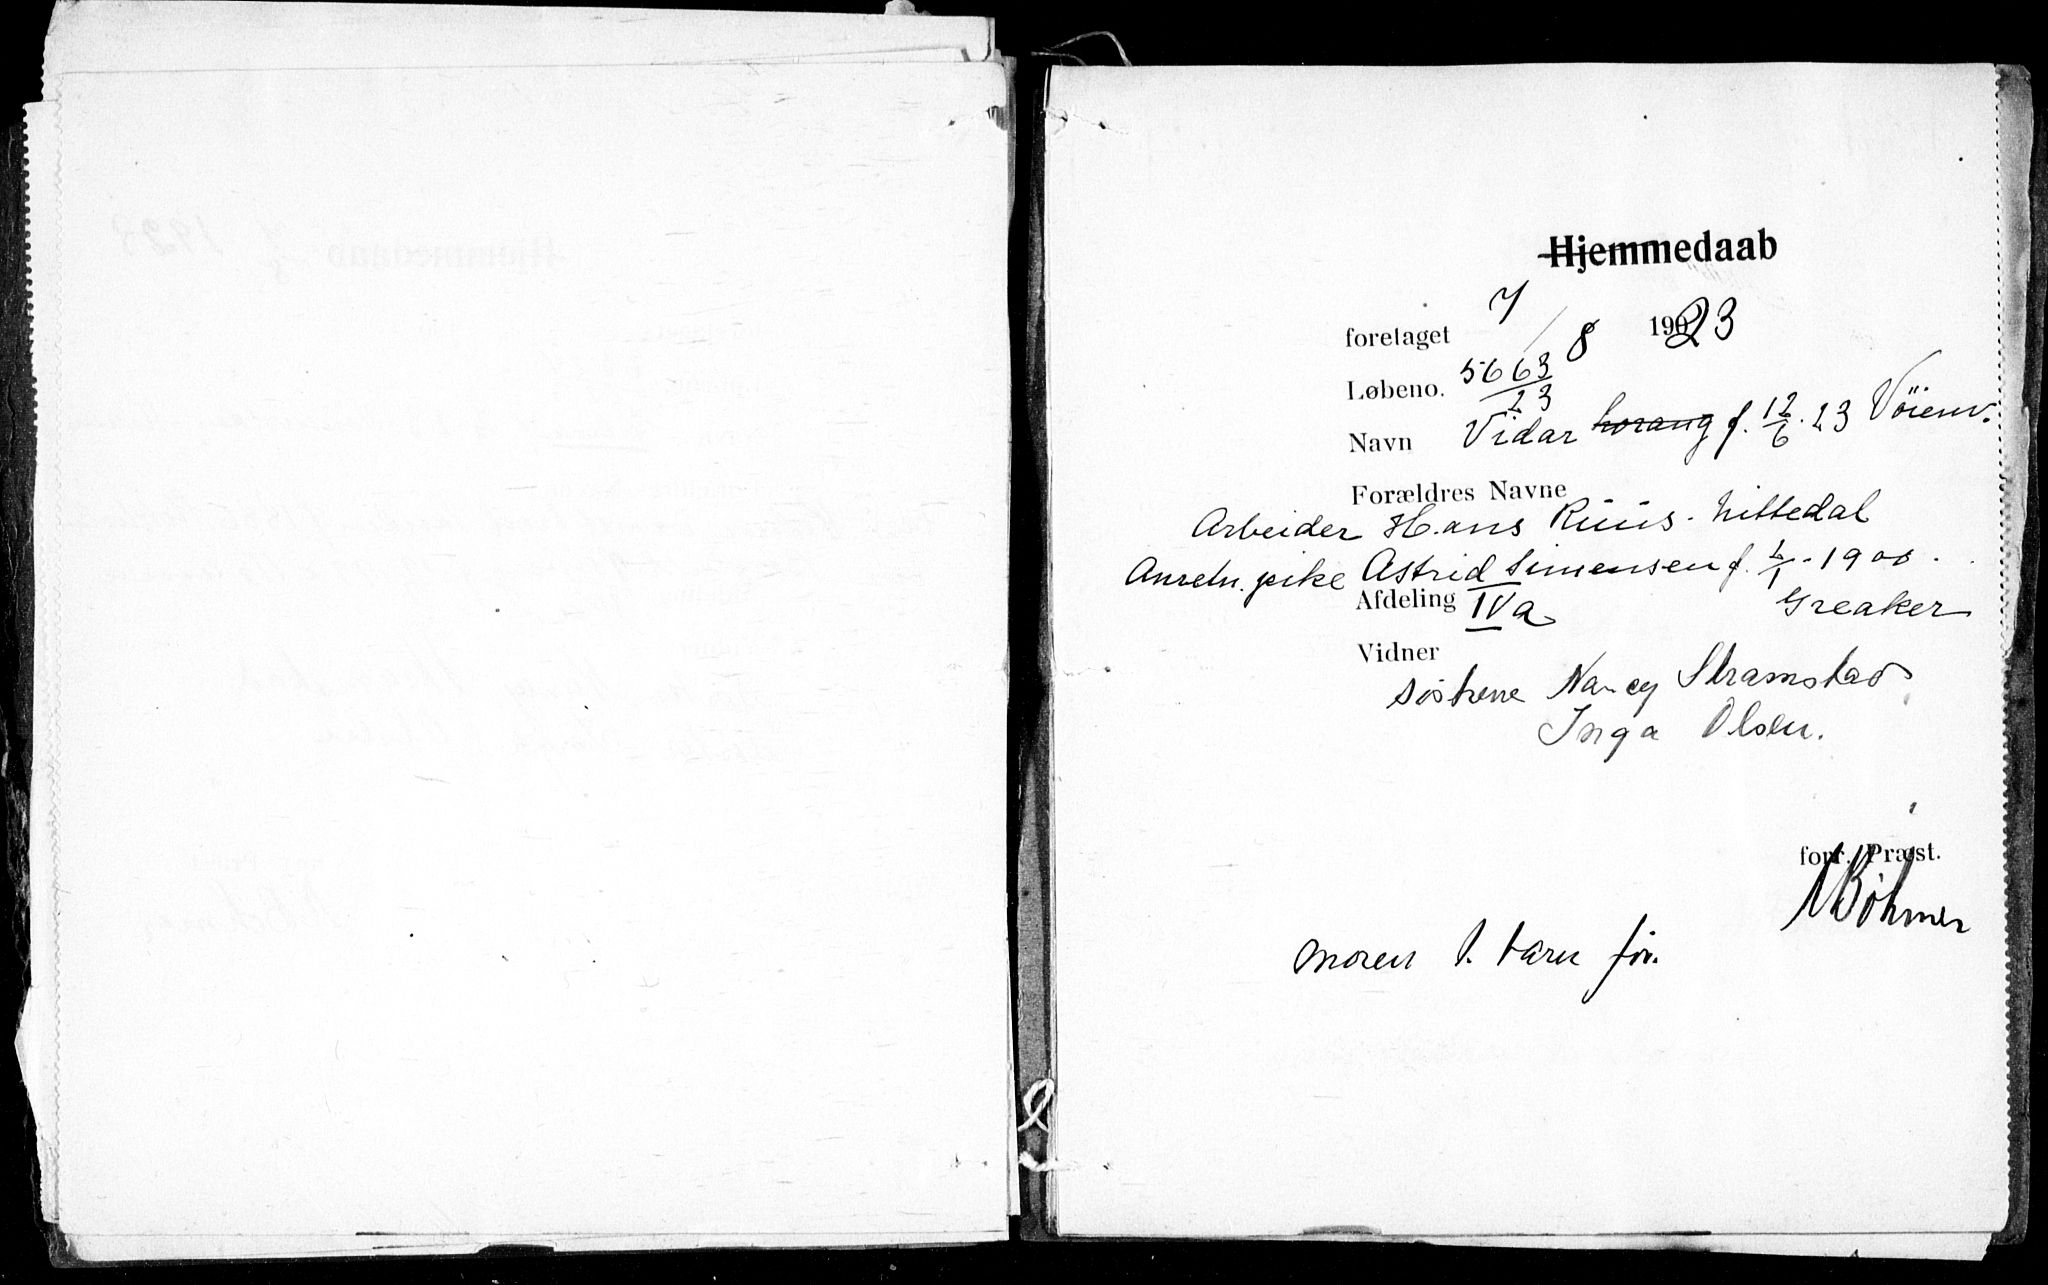 Hjemmedaab
foretaget 7/8 1923
Løbeno. 5663/23
Navn Vidar horang f. 12/6.23 Vöienv.
Forældres Navne
Arbeider Hans Ruus. Nittedal
Anretn.pike Astrid Simensen f. 6/1.1900.
Afdeling IVa Greaker
Vidner
søstrene Nancy Stramstad
Inga Olsen.
forr. Præst.
Bøhmer
moren 1. barn før.